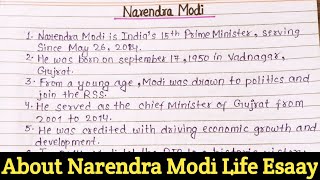 Narendra Modi
1. Narendra Modi is India's 15th Prime Minister, serving
Since May 26, 2014.
2. He was born on september 17, 1950 in Vadnagar,
Gujrat.
3. From a young age, Modi was drawn to politics and
join the RSS.
4. He served as the chief Minister of Gujrat from
2001 to 2014.
5. He was credited with driving economic growth and
development.
About Narendra Modi Life Esaay